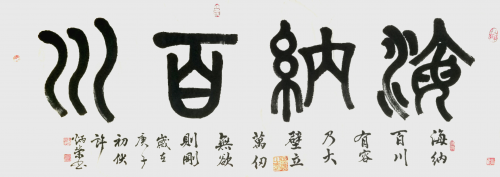 海納百川
海納
百川
有容
乃大
壁立
萬仞
無欲
則剛
歲在
庚子
初伏
許